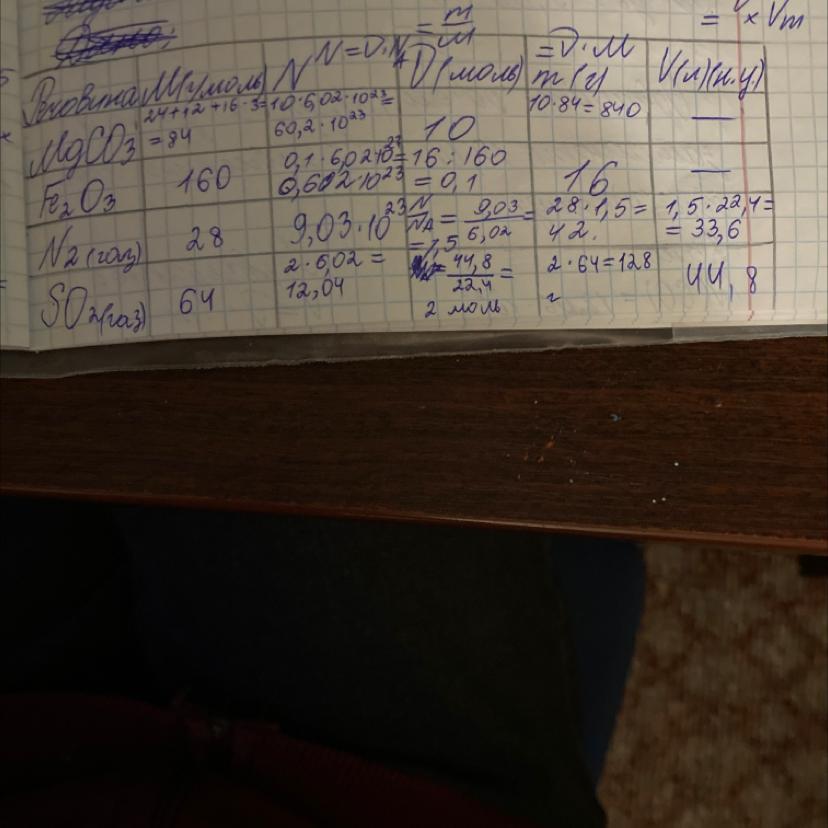 = m/M
= V × Vm
N = D·NA
= D·M
Речовина M(г/моль) N D(моль) m(г) V(л)(н.у.)
MgCO3 24+12+16·3= =84 10·6,02·10^23= 60,2·10^23 10 10·84=840 —
Fe2O3 160 0,1·6,02·10^23= 0,602·10^23 16:160 =0,1 16 —
N2(газ) 28 9,03·10^23 N/NA = 9,03/6,02 = =1,5 28·1,5= 42. 1,5·22,4= =33,6
SO2(газ) 64 2·6,02= 12,04 44,8/22,4 = 2 моль 2·64=128 г 44,8